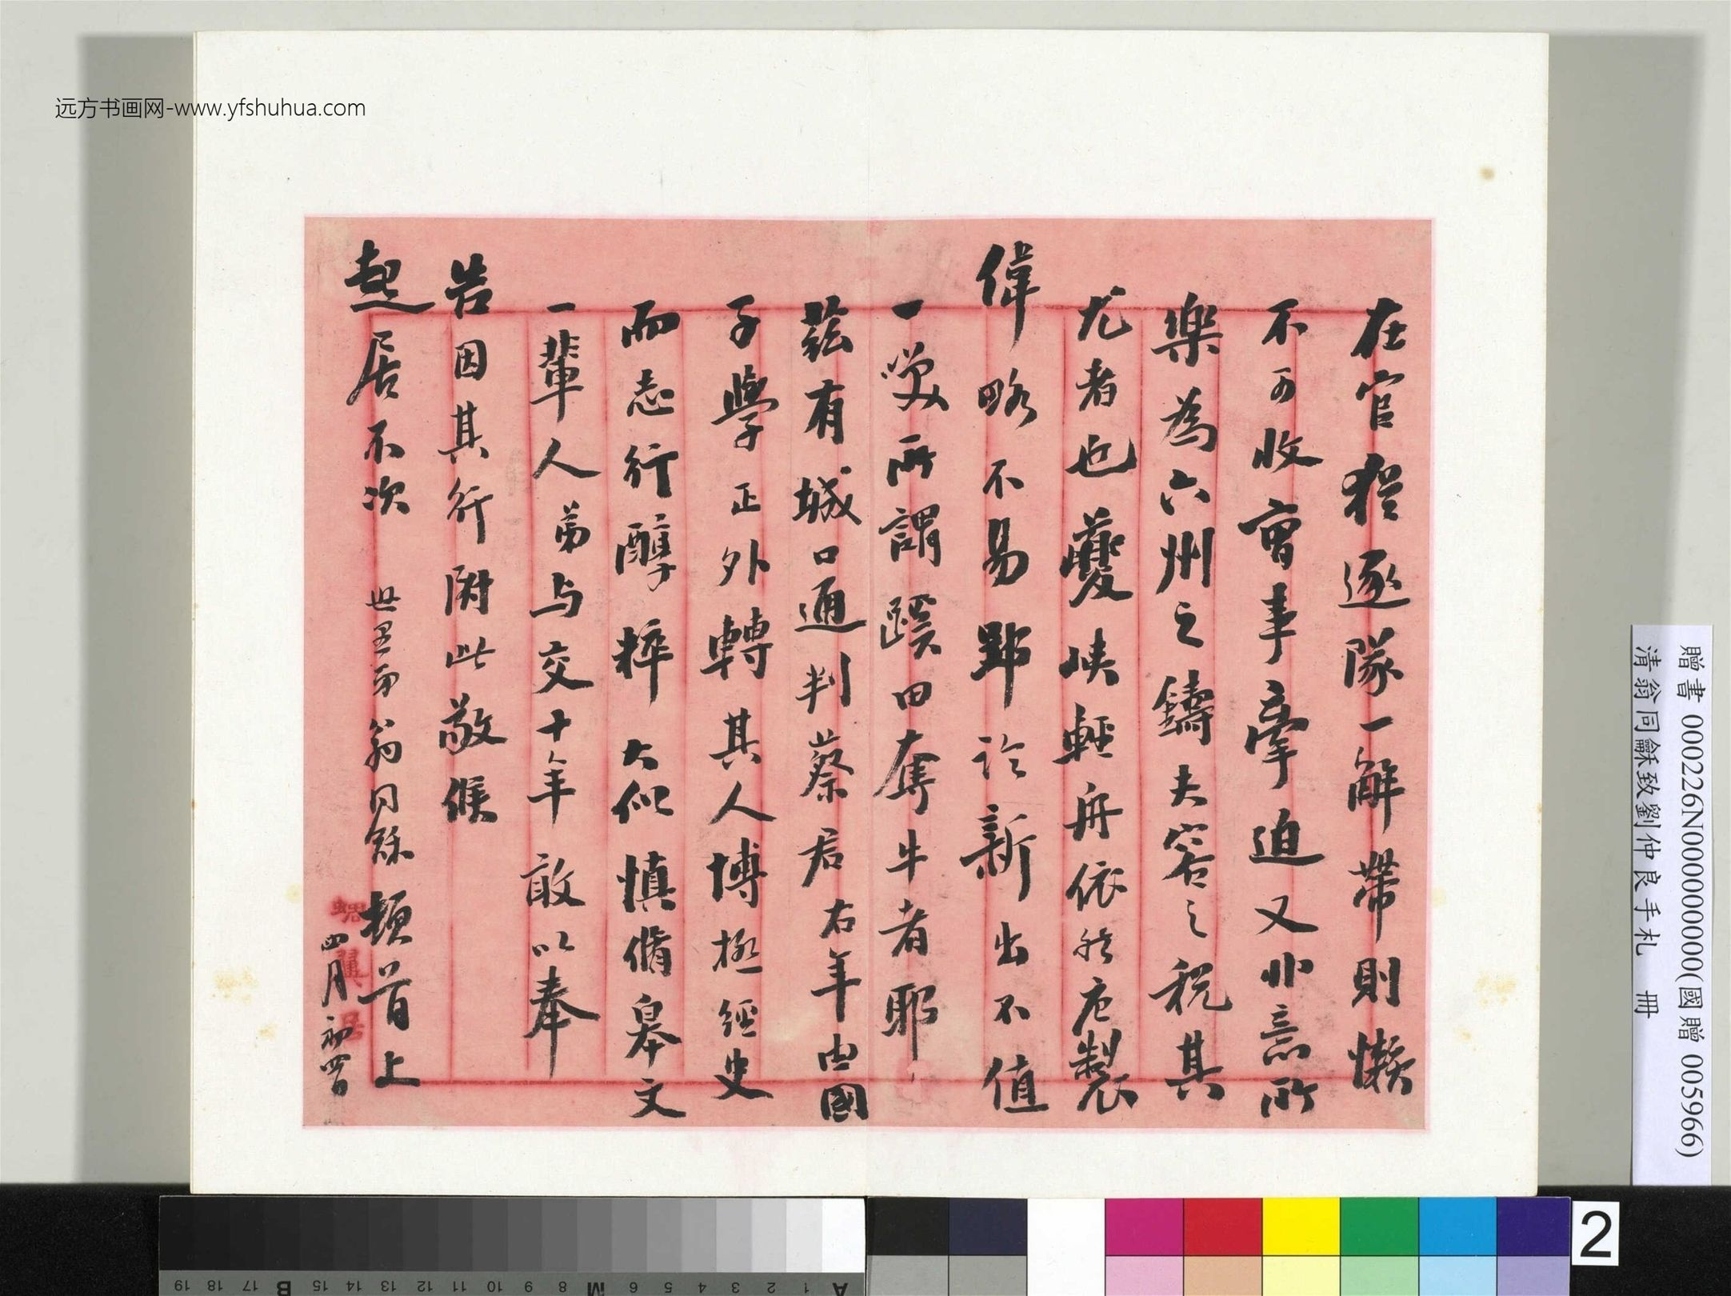 在官猶逐隊一解帶則懶
不可收曾事牽迫又非意所
樂為六州之鑄夫容之税其
尤者也夔峽輕舟依然危製
偉略不易鄂論新出不值
一笑所謂蹊田奪牛者耶
茲有城口通判蔡君右年由國
子學正外轉其人博極經史
而志行醇粹大似慎脩皋文
一輩人弟与交十年敢以奉
告因其行附此敬候
起居不次 世愚弟翁同龢頓首上
四月初四日
贈書 000226N000000000(國贈 005966)
清翁同龢致劉仲良手札 冊
远方书画网-www.yfshuhua.com
2
A 1 2 3 4 5 6 M 8 9 10 11 12 13 14 15 B 17 18 19